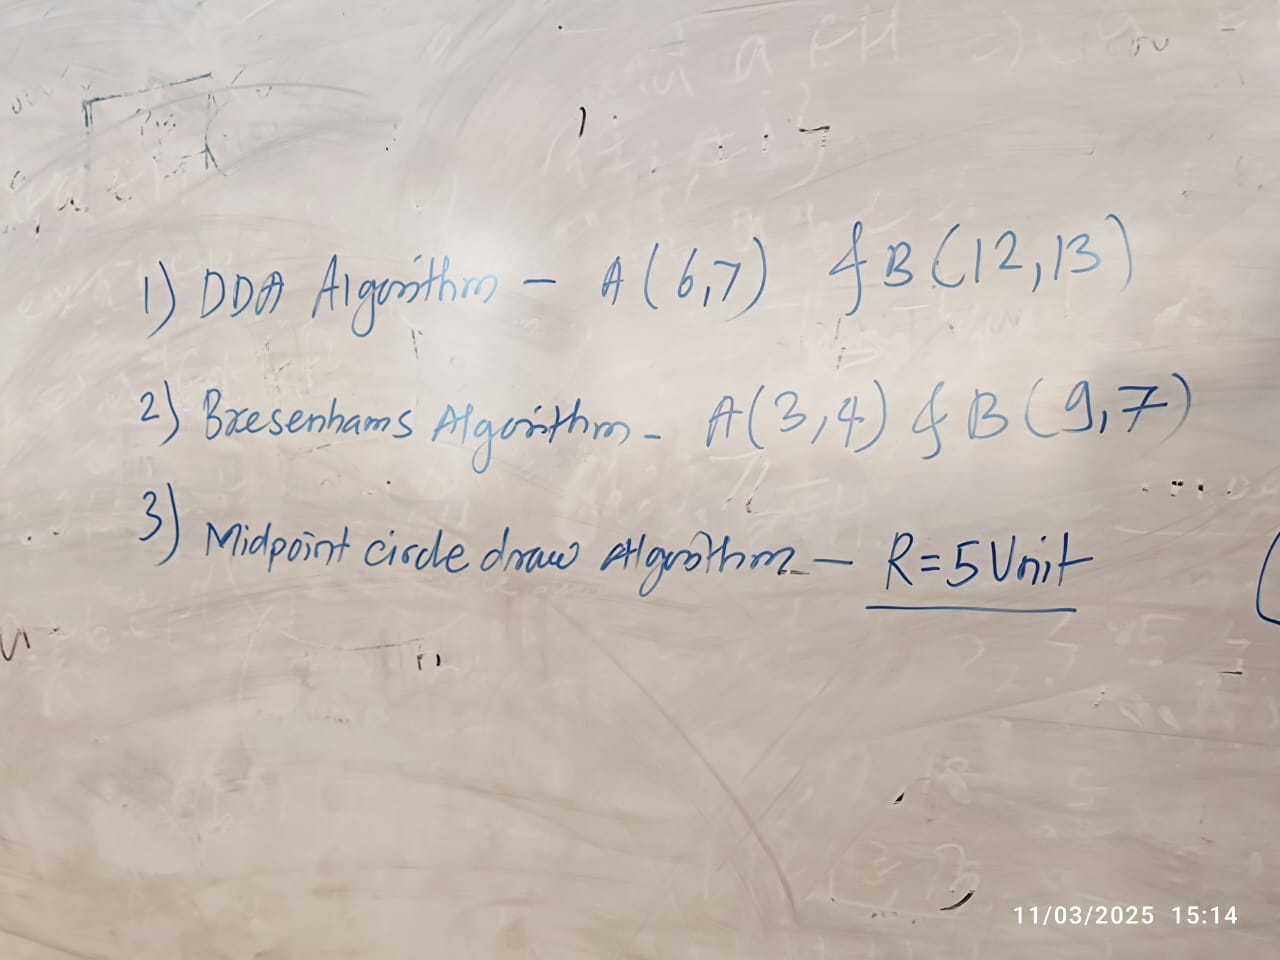 1) DDA Algorithm - A(6,7) & B(12,13)
2) Bresenhams Algorithm - A(3,4) & B(9,7)
3) Midpoint circle draw Algorithm - R=5 Unit
11/03/2025 15:14